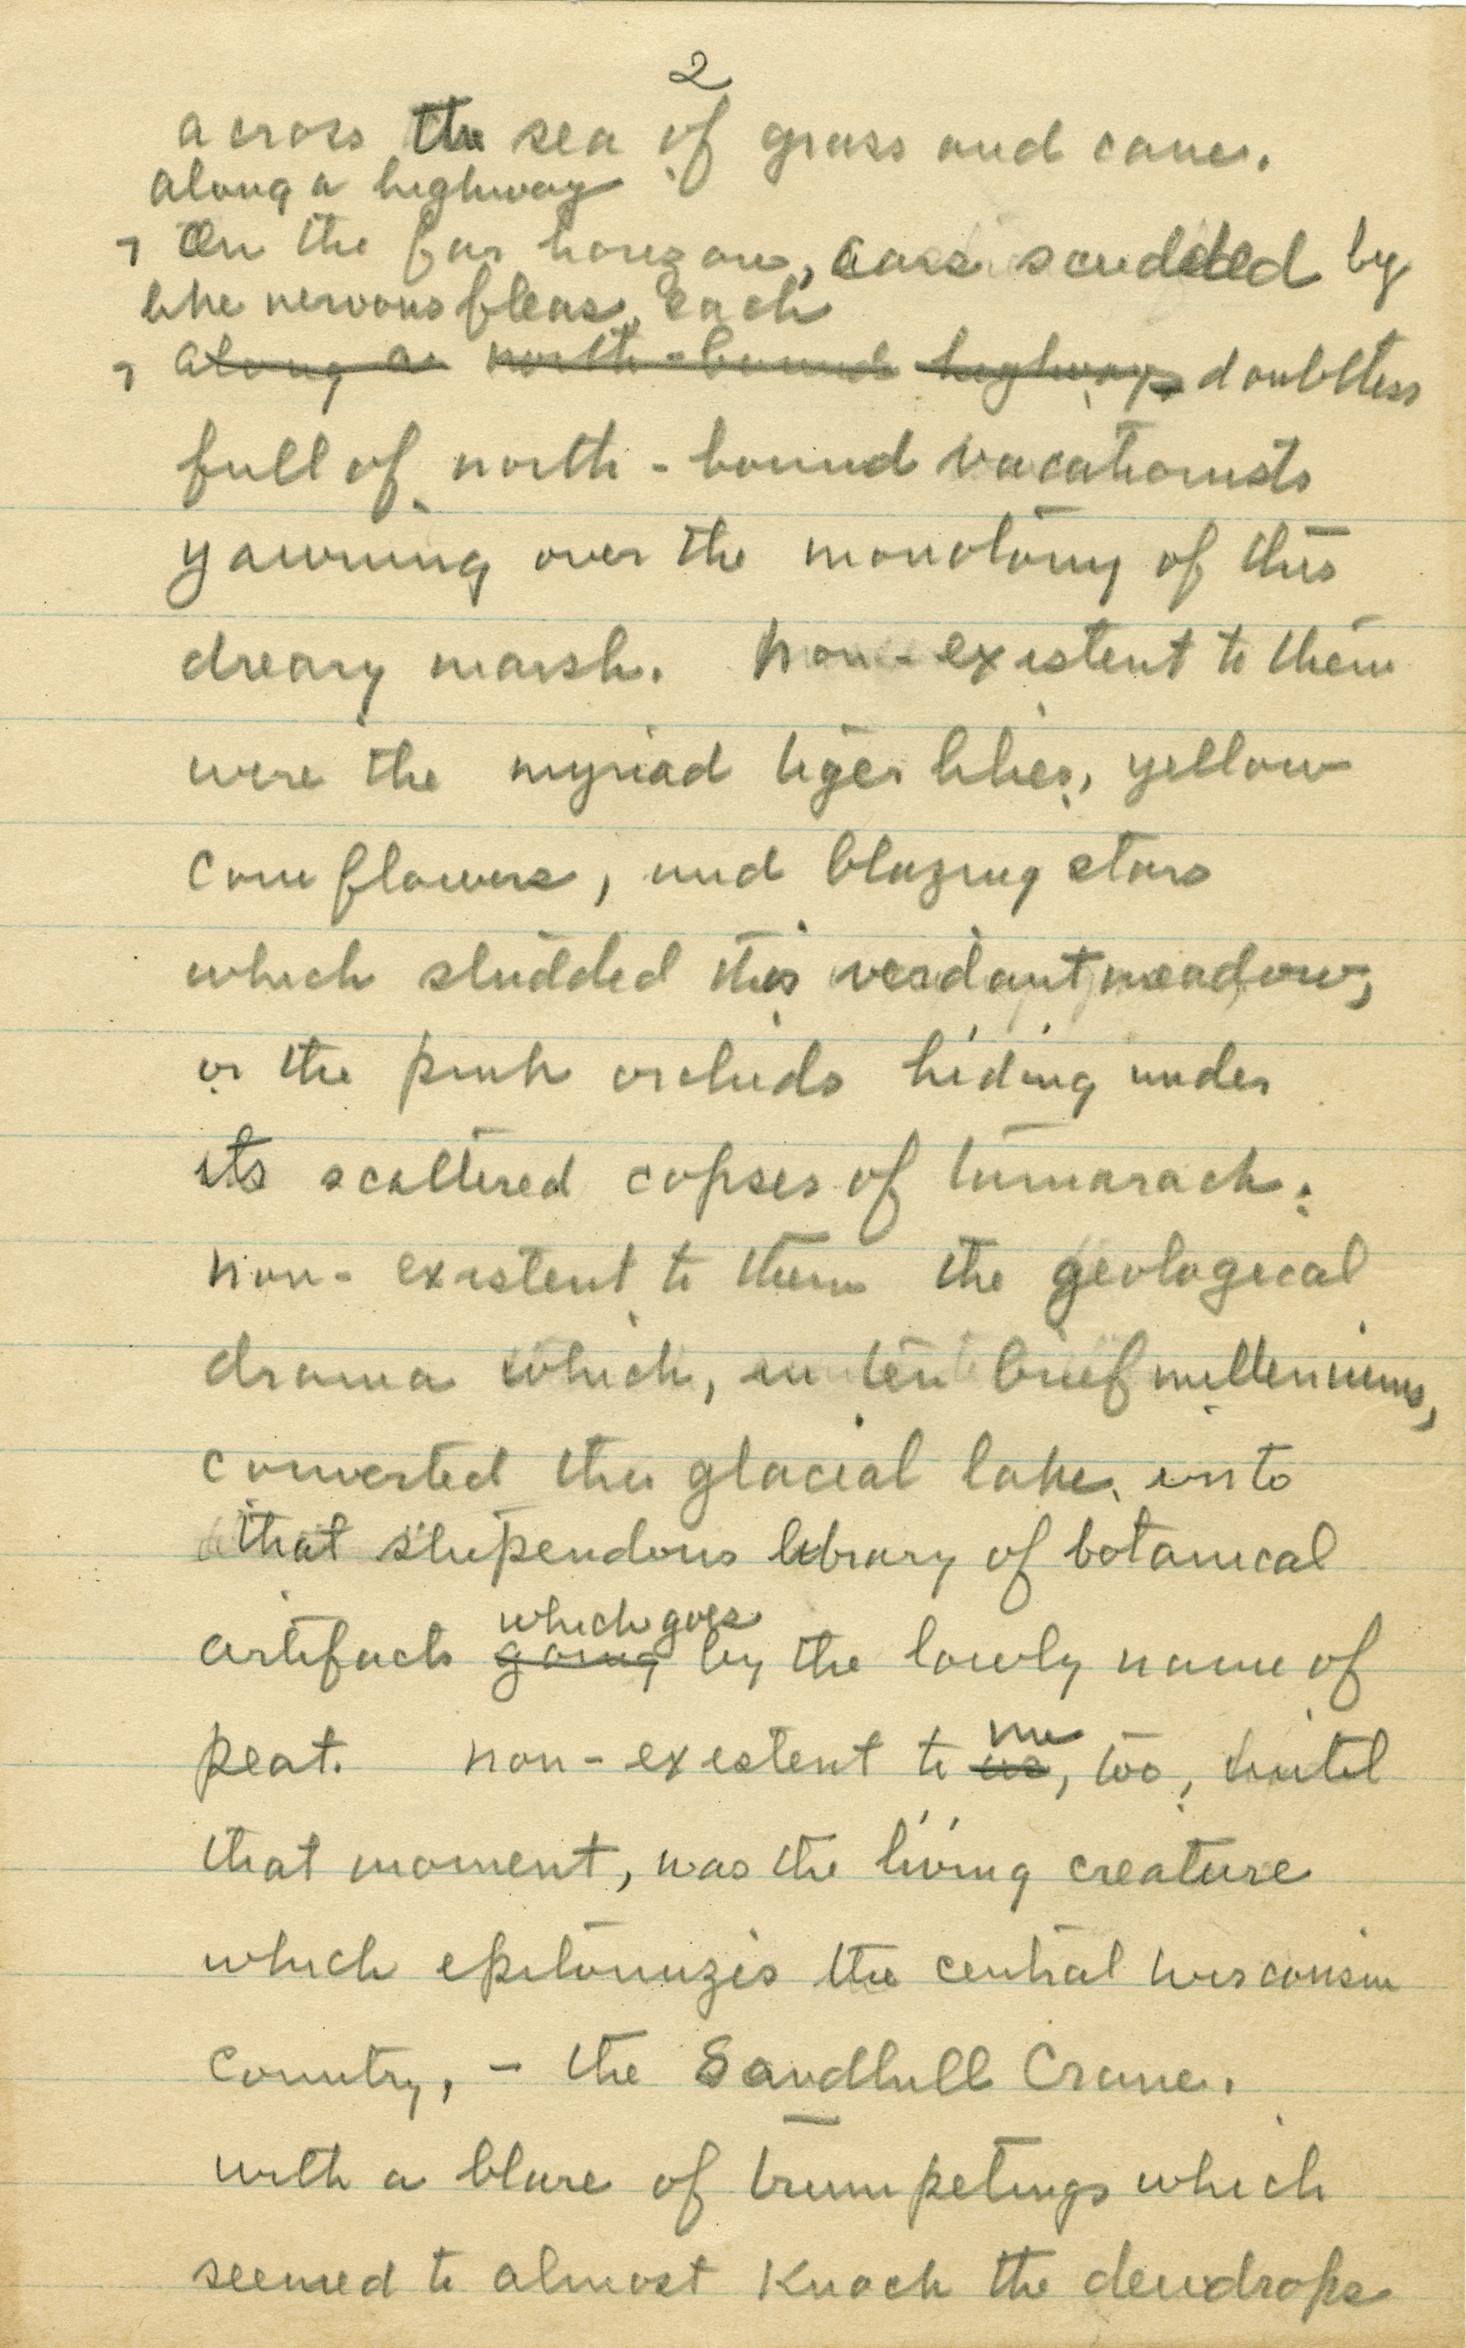 2
across the sea of grass and cane.
along a highway
On the far horizon, cars scudded by
like nervous fleas, each
along a north-bound highway, doubtless
full of north-bound vacationists
yawning over the monotony of this
dreary marsh. Non-existent to them
were the myriad tiger lilies, yellow
coneflowers, and blazing stars
which studded this verdant meadow,
or the pink orchids hiding under
its scattered copses of tamarack;
non-existent to them the geological
drama which, in ten brief milleniums,
converted this glacial lake into
that stupendous library of botanical
which goes
artifacts going by the lowly name of
me
peat. Non-existent to us, too, until
that moment, was the living creature
which epitomizes the central Wisconsin
country, - the Sandhill Crane.
With a blare of trumpetings which
seemed to almost knock the dewdrops